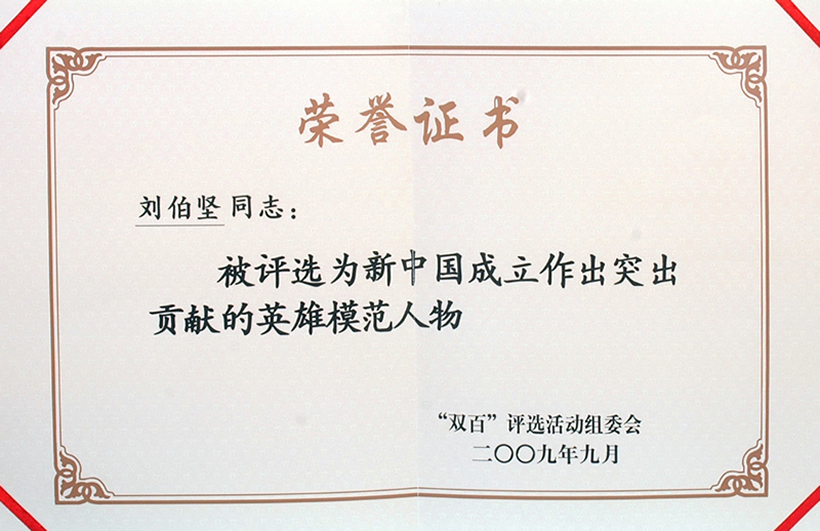 荣誉证书
刘伯坚同志：
被评选为新中国成立作出突出
贡献的英雄模范人物
“双百”评选活动组委会
二〇〇九年九月